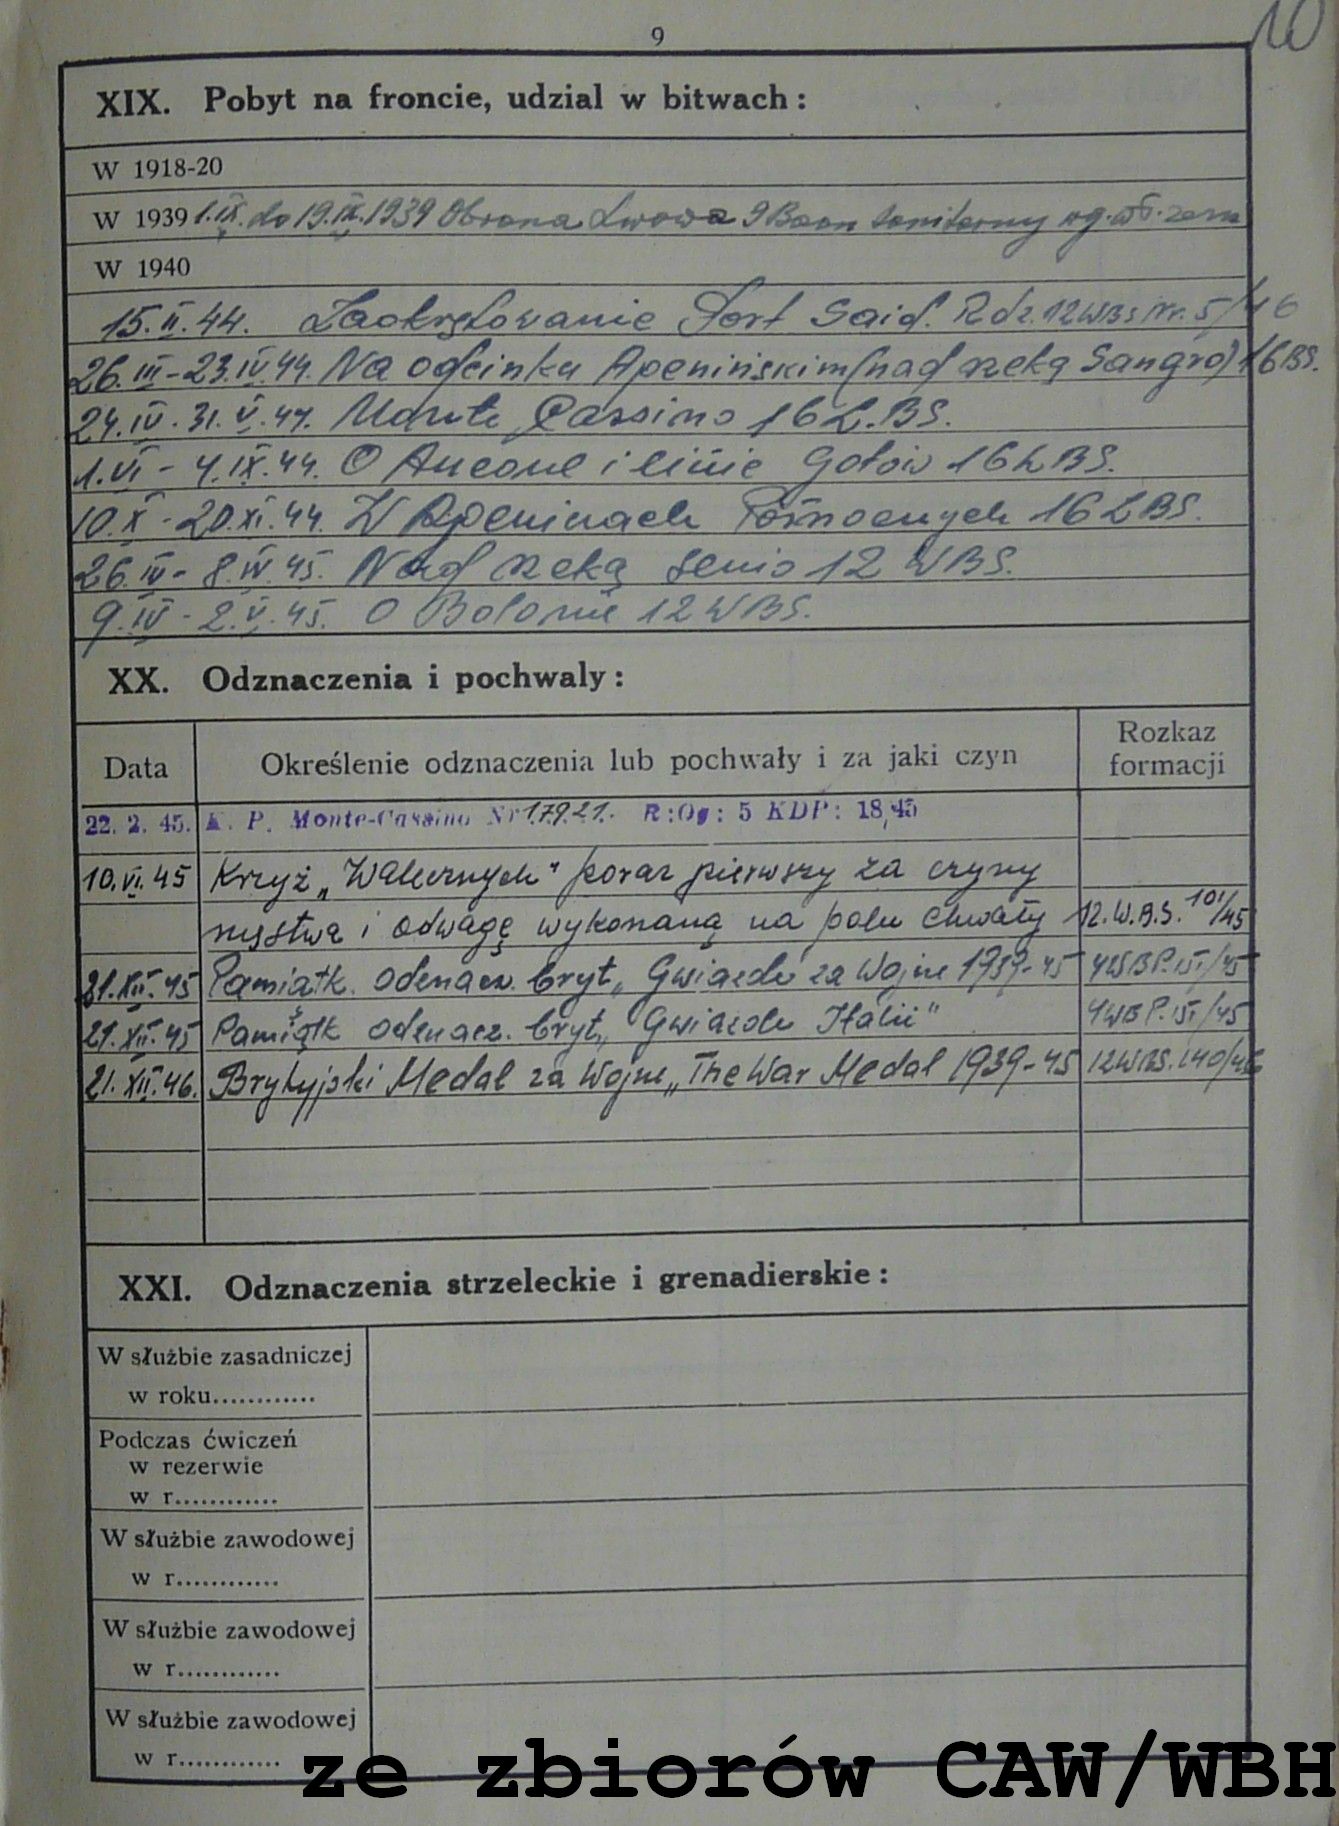 9
10
XIX. Pobyt na froncie, udzial w bitwach:
W 1918-20
W 1939 1.IX. do 19.IX.1939 Obrona Lwowa 9 Baon Sanitarny wg. wł. zezn
W 1940
15.II.44. Zaokrętowanie Port Said. Rdz. 12WBS nr. 5/46
26.III-23.IV.44. Na odcinku Apenińskim (nad rzeką Sangro) 16BS.
24.IV.-31.V.44. Monte Cassino 16 L.BS.
1.VI - 4.IX.44. O Ancone i linie Gotów 16 L BS.
10.X-20.XI.44. W Apeninach Północnych 16 LBS.
26.III- 8.IV.45. Nad rzeką Senio 12 WBS.
9.IV- 2.V.45. O Bolonie 12 WBS.
XX. Odznaczenia i pochwaly:
Data
Określenie odznaczenia lub pochwały i za jaki czyn
Rozkaz formacji
22. 2. 45. K. P. Monte-Cassino Nr 17921. R:Og: 5 KDP: 18,45
10.VI.45 Krzyż „Walecznych" poraz pierwszy za czyny
męstwa i odwagę wykonaną na polu chwały 12.W.B.S. 101/45
21.XII.45 Pamiątk. odznacz. bryt. „Gwiazda za Wojnę 1939-45 4WBP.151/45
21.XII.45 Pamiątk odznacz. bryt. „Gwiazda Italii" 4WBP.151/45
21.XII.46. Brytyjski Medal za Wojnę „The War Medal 1939-45 12WBS.140/46
XXI. Odznaczenia strzeleckie i grenadierskie:
W służbie zasadniczej
w roku............
Podczas ćwiczeń
w rezerwie
w r............
W służbie zawodowej
w r............
W służbie zawodowej
w r............
W służbie zawodowej
w r............
ze zbiorów CAW/WBH